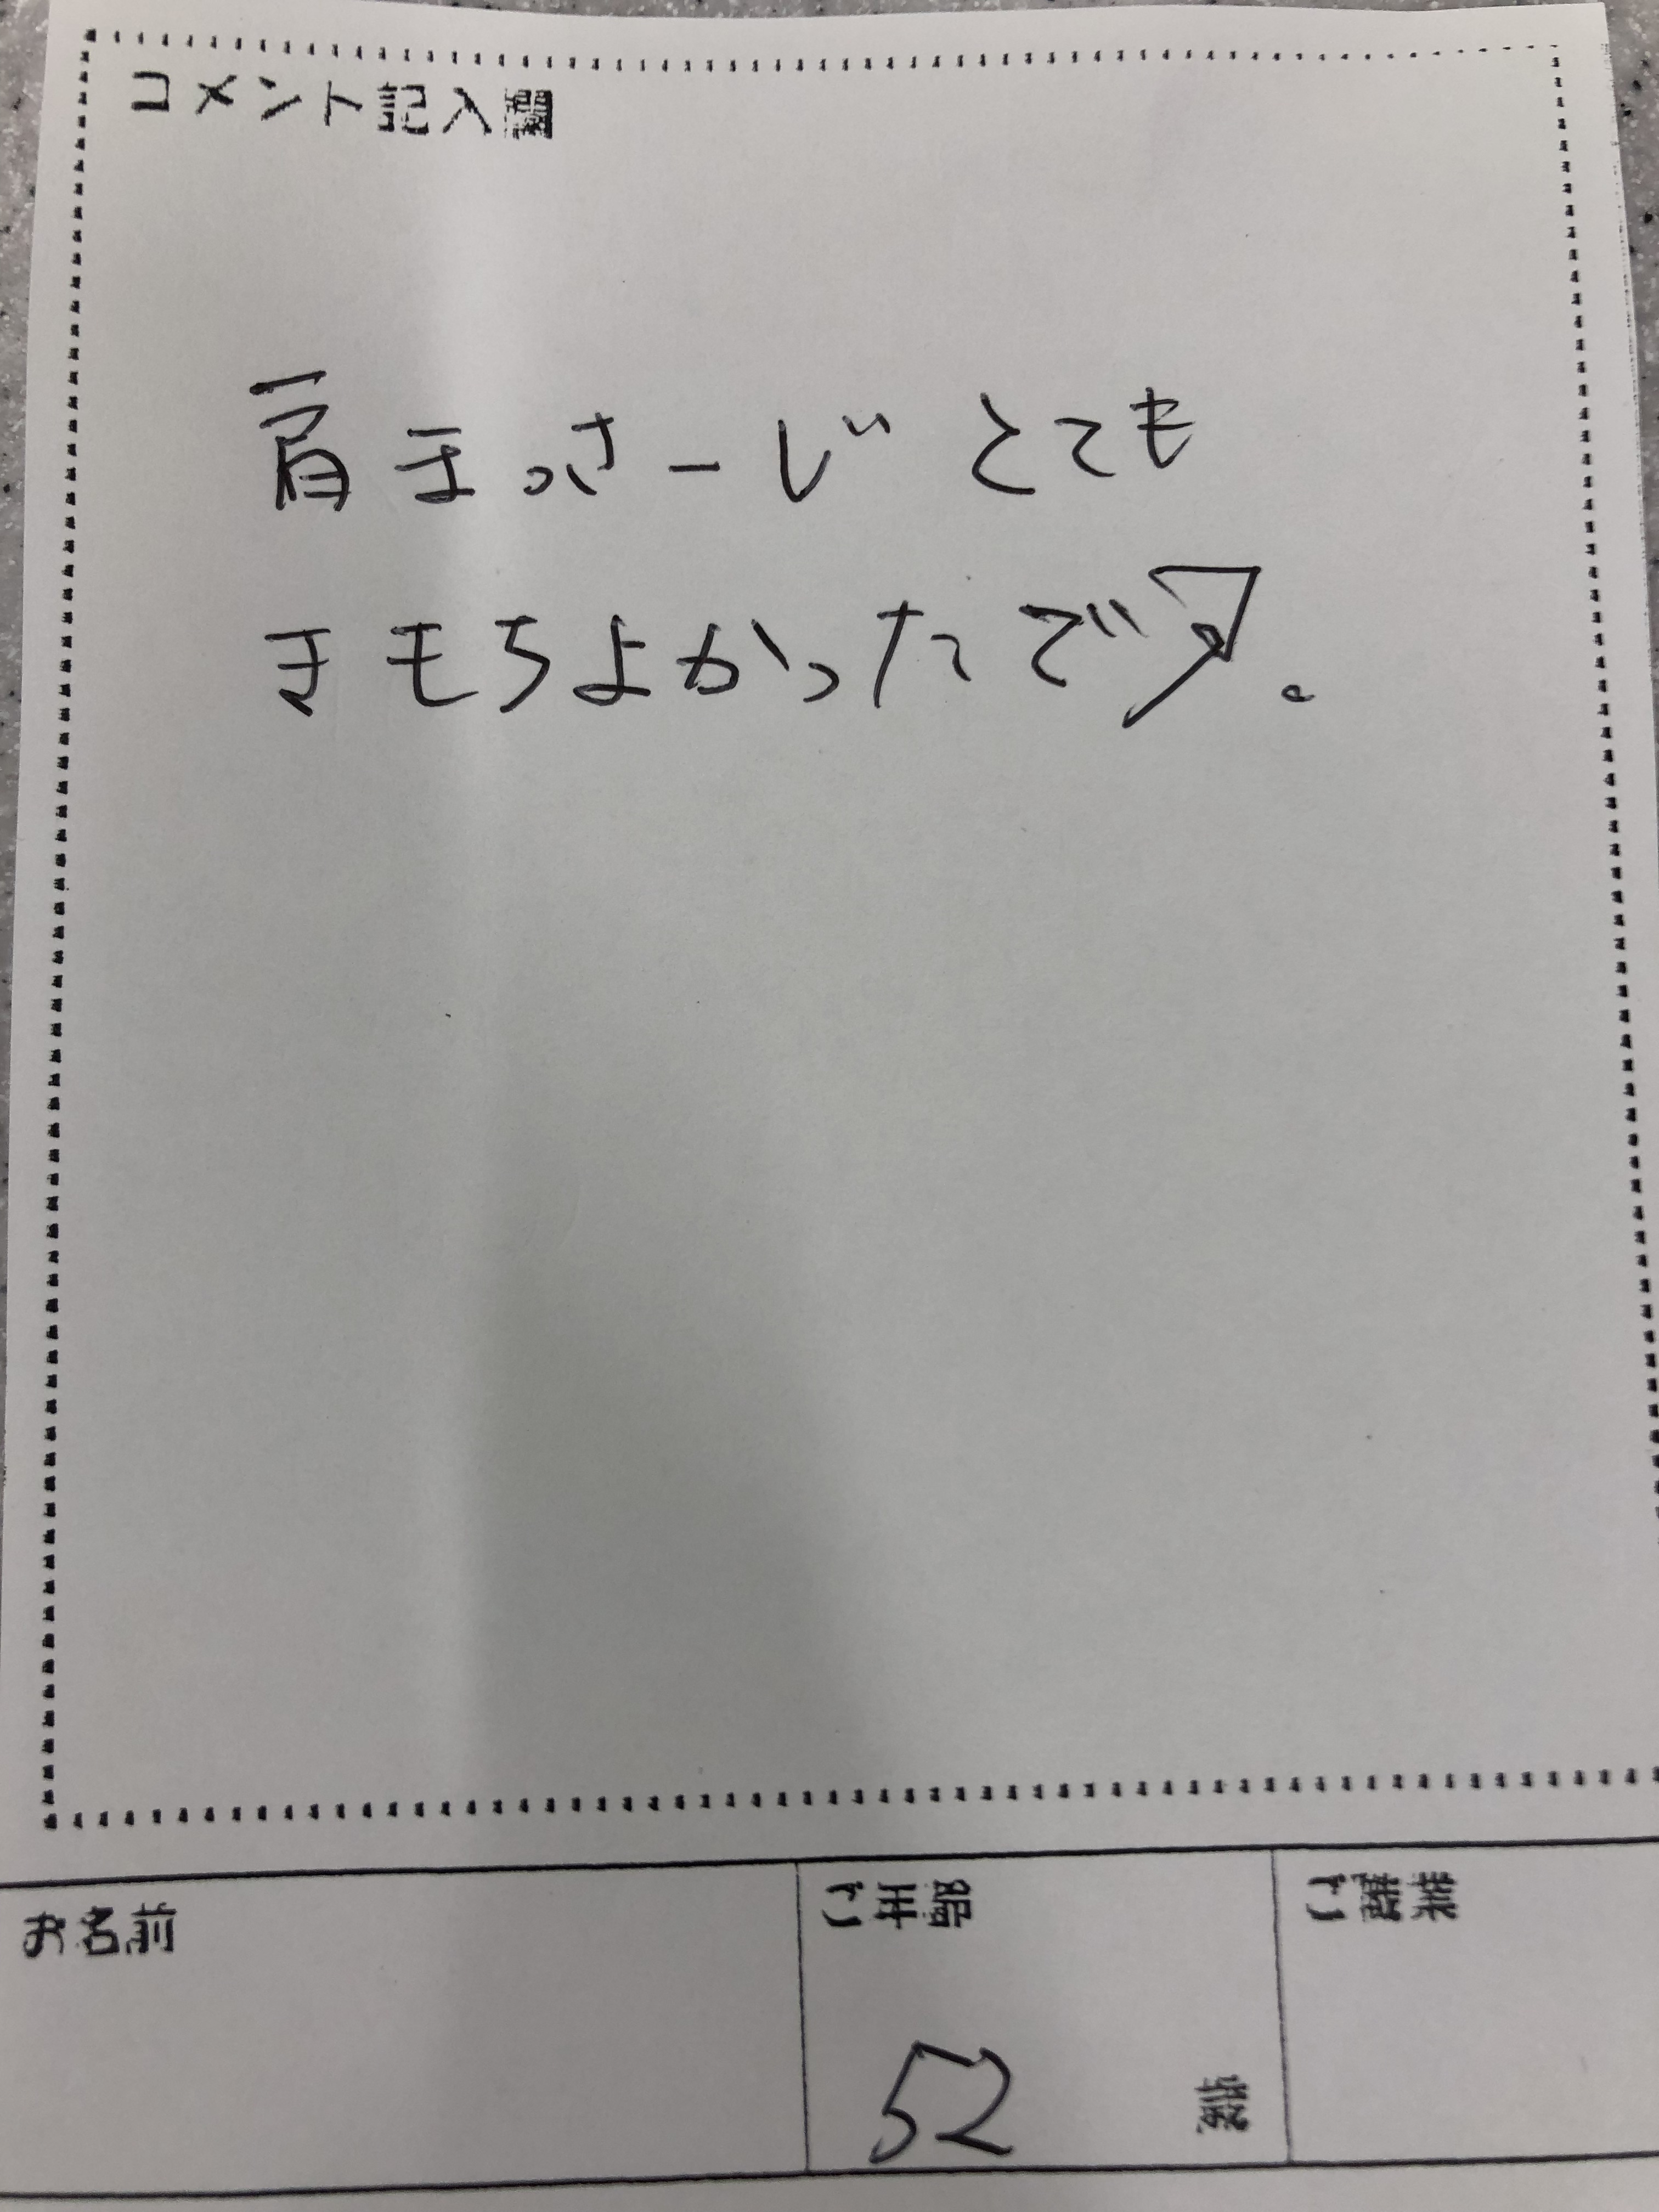 コメント記入欄
肩まっさーじ とても
きもちよかったです。
お名前
ご年齢
ご職業
52
歳